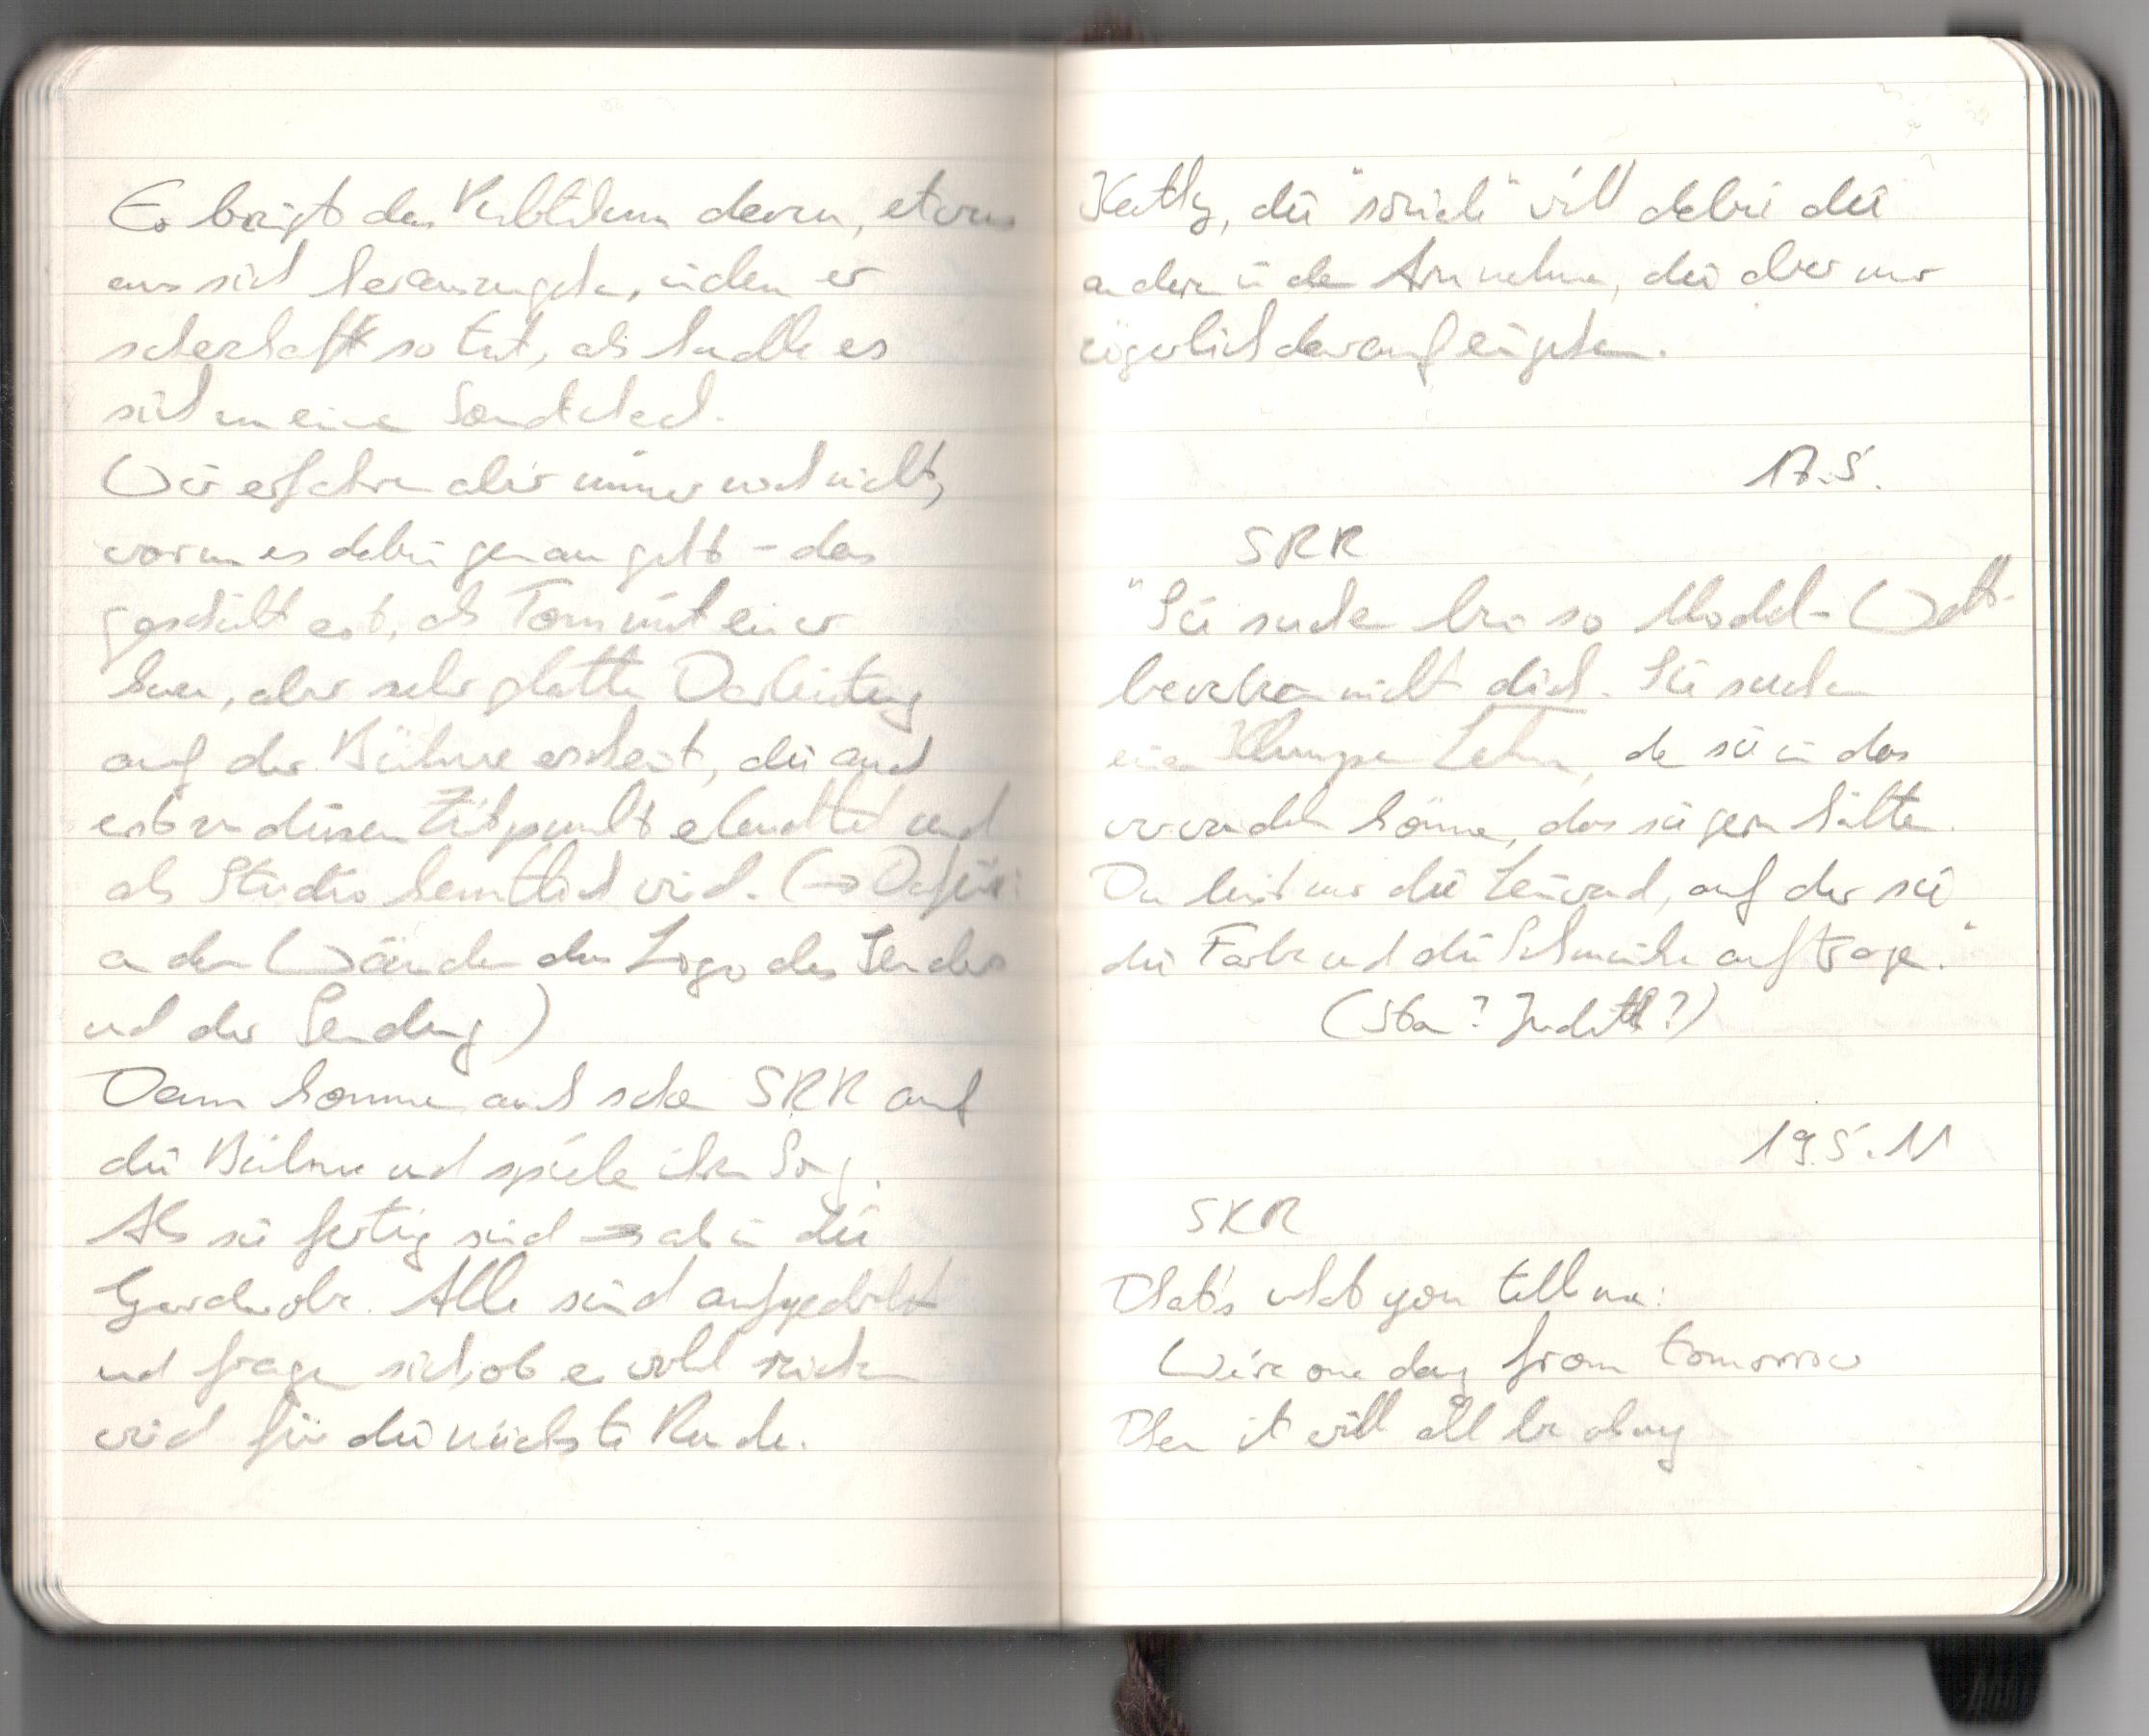 Er bringt das Publikum davon, etwas
aus sich herauszugehen, indem er
scherzhaft so tut, als handle es
sich um einen Soundcheck.
Wir erfahren aber immer noch nicht,
worum es dabei genau geht - das
geschieht erst, als Tom mit einer
kurzen, aber sehr glatten Darbietung
auf der Bühne erscheint, die auch
erst zu diesem Zeitpunkt erleuchtet und
als Studio kenntlich wird. (→ Dafür:
an den Wänden das Logo des Senders
und der Sendung)
Dann kommen auch schon SRR auf
die Bühne und spielen ihren Song.
Als sie fertig sind → ab in die
Garderobe. Alle sind aufgedreht
und fragen sich, ob es wohl reichen
wird für die nächste Runde.
Kathy, die "sich" will dabei die
anderen in den Arm nehmen, die aber nur
zögerlich darauf eingehen.
17.5.
SRR
"Sie suchen bei so Model-Wett-
bewerben nicht dich. Sie suchen
einen Klumpen Lehm, den sie in das
verwandeln können, das sie gern hätten.
Du bist nur die Leinwand, auf der sie
die Farbe und die Schminke auftragen."
( ? Judith?)
19.5.11
SKR
That's what you tell me:
We're one day from tomorrow
Then it will all be okay